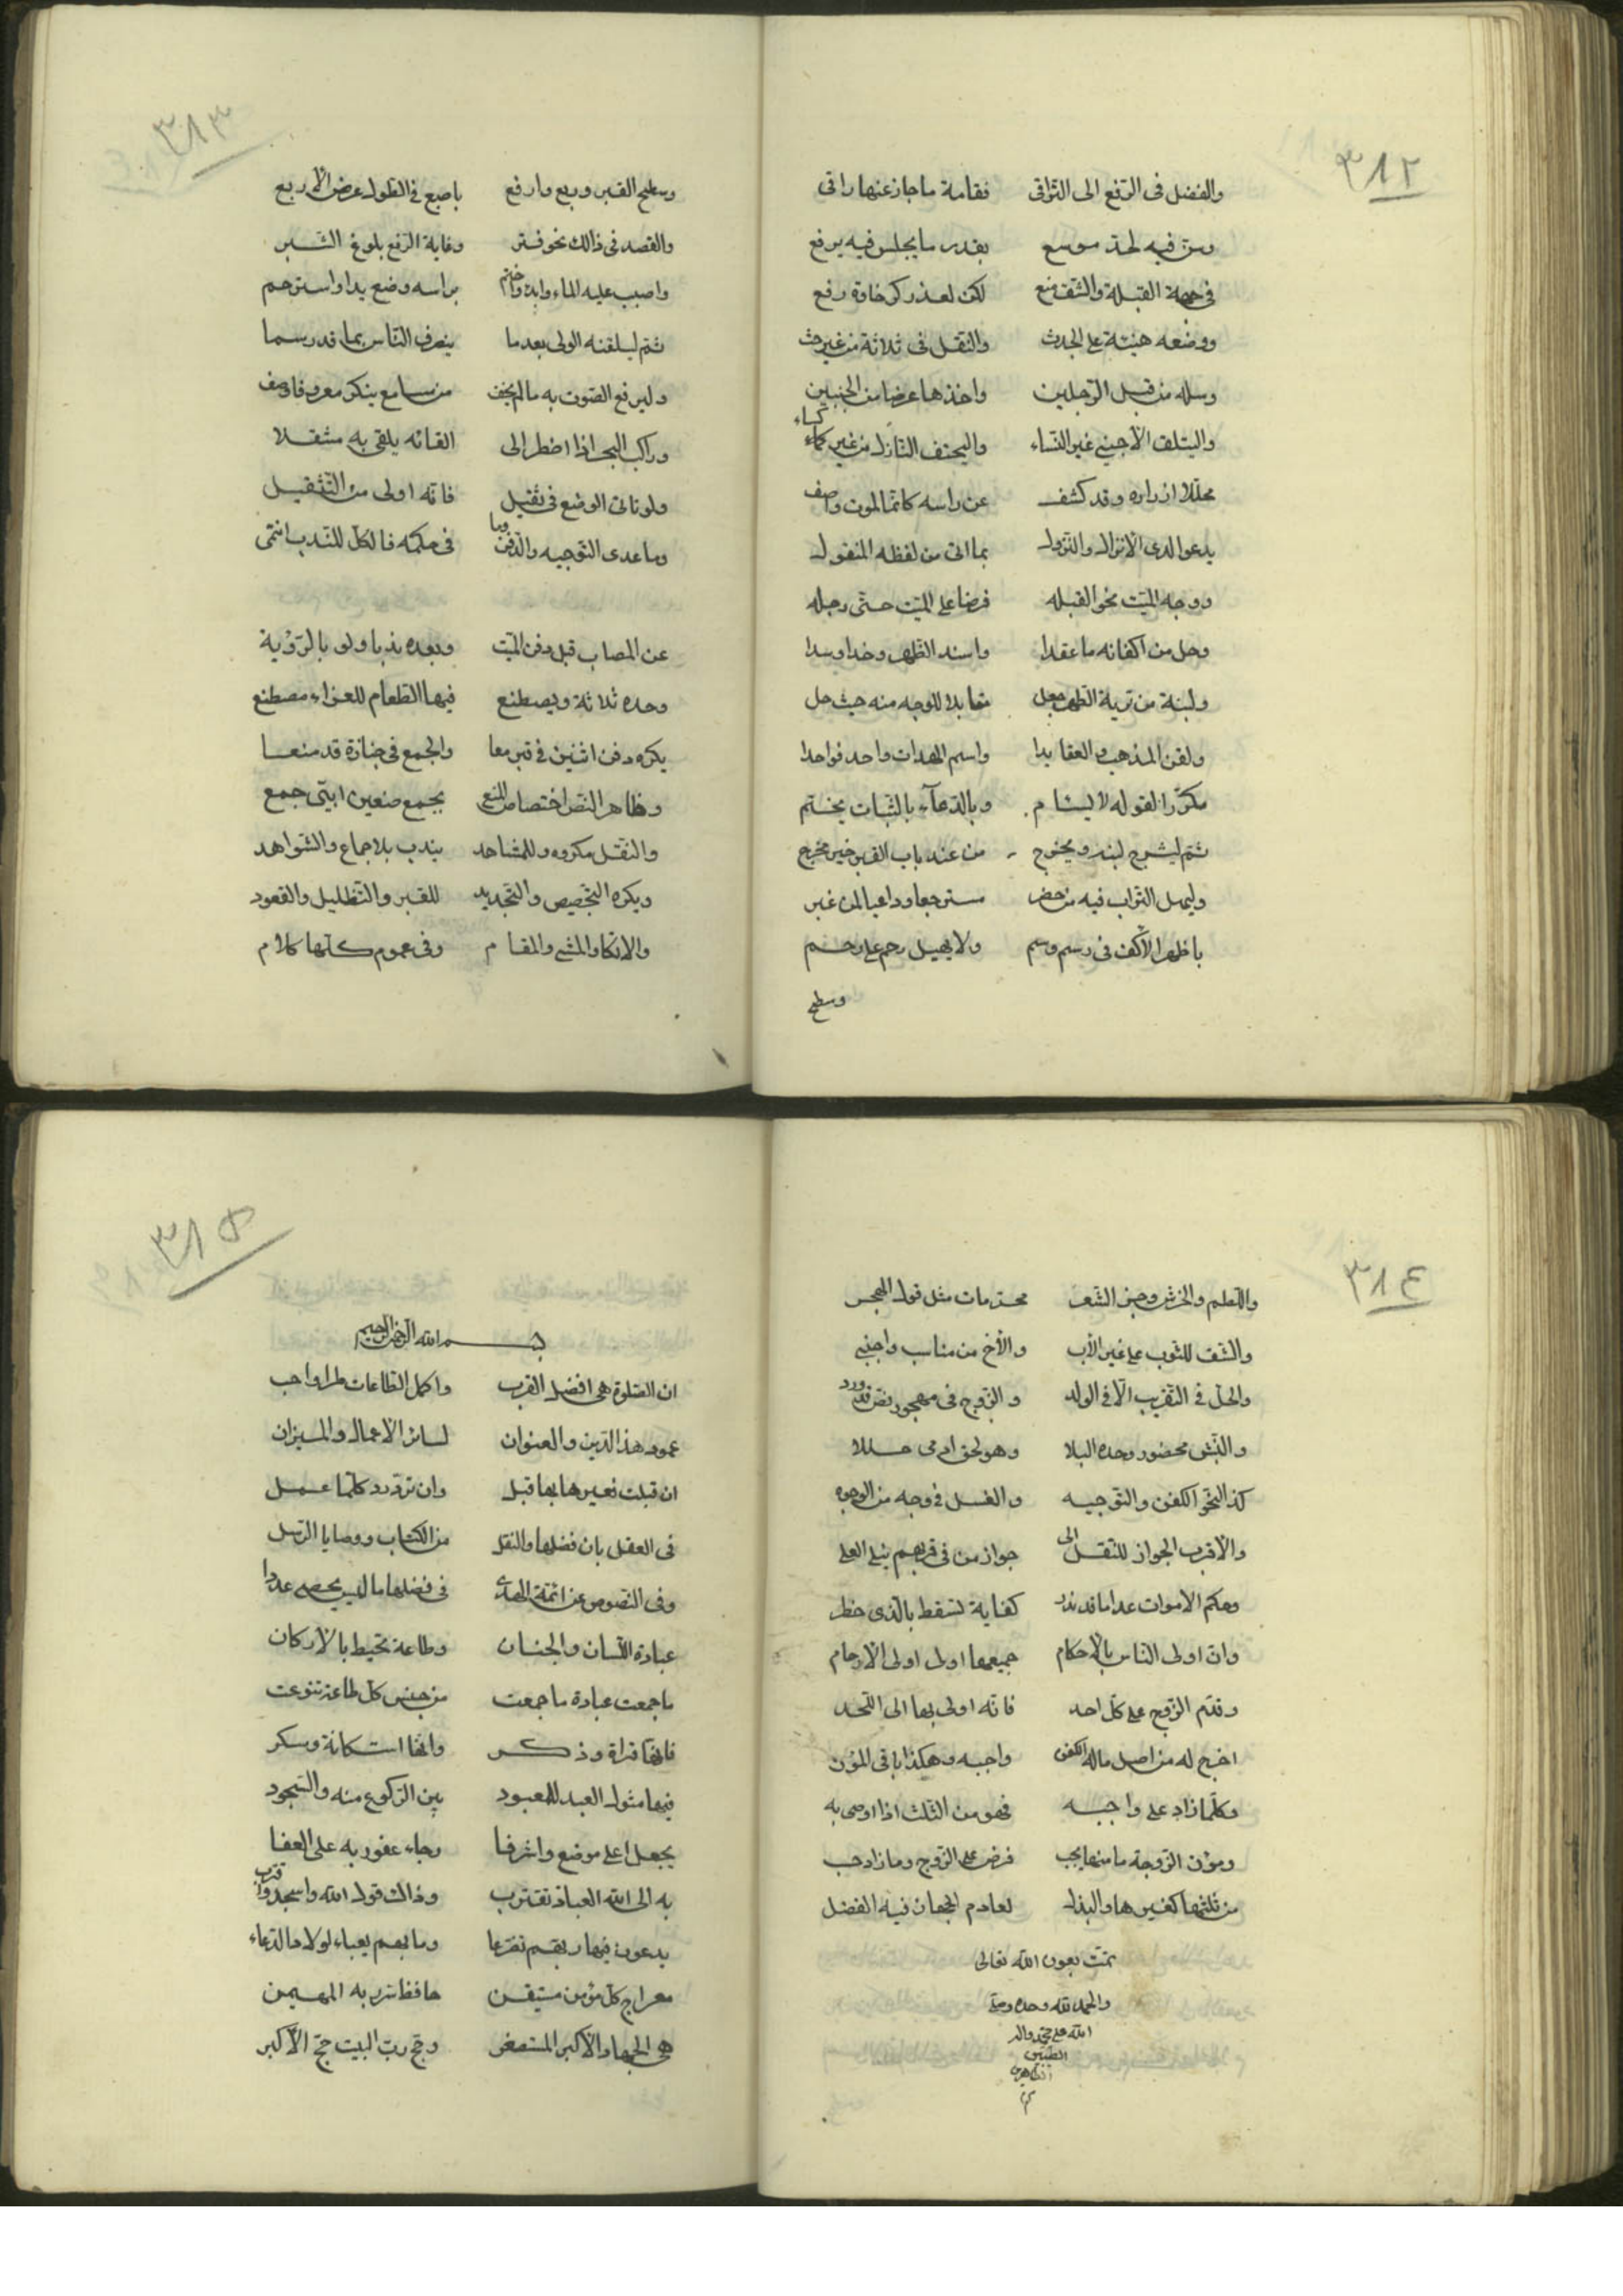 ٣٨٢
والفضل فى الرفع الى التراقى فقامة ما جاز عنها راقى
وسن فيه لحد موسع بقدر ما يجلس فيه يرفع
فى جهة القبلة والشق منع لكن لعذر كرخاوة رفع
ووضعه هنيئة على الجدث والنقل فى ثلاثة من غير حث
وسله من قبل الرجلين واخذها عرضا من الجنبين
كساء
والنساء واليحتف النازل من غير
محللا ازراره وقد كشف عن راسه كانما الموت وصف
يدعو لدى الانزال والنزول بما اتى من لفظه المنقول
ووجه الميت نحو القبله فرضا على الميت حتى رجله
وحل من اكفانه ما عقدا واسند الظهر وخدا وسدا
ولبنة من تربة الطهر جعل مقابلا للوجه منه حيث حل
ولقن المذهب والعقايدا واسم الهداة واحد فواحدا
مكررا لقوله لا يسام وبالدعآء بالثبات يختم
ثم ليشرج لبنه ويخرج من عند باب القبر خير مخرج
وليهل التراب فيه من حضر مسترجعا وداعيا لمن غبر
باظهر الاكف فى رسم وسم ولا يهيل رحم على رحم
وسطح
٣٨٣
وسطح القبر وربع وارفع باصبع فى الطول عرض الاربع
والقصد فى ذالك نحو فتر وغاية الرفع بلوغ الشبر
واصبب عليه الماء وابدء واختم براسه وضع يدا واسترحم
ثم ليلقنه الولى بعدما ينصرف الناس بما قد رسما
وليرفع الصوت به ما لم يخف من سامع ينكر معروفا وصف
وراكب البحر اذا اضطر الى القائه يلقى به مثقلا
ولو تاتى الوضع فى ثقيل فانه اولى من التثقيل
وما عدى التوجيه والدفن وما فى حكمه فالكل للندب انتمى
عن المصاب قبل دفن الميت وبعده ندبا ولو بالرؤية
وحده ثلاثة ويصطنع فيها الطعام للعزاء مصطنع
يكره دفن اثنين فى قبر معا والجمع فى جنازة قد منعا
وظاهر النص اختصاص المنع بجمع صنفين ابيتى جمع
والنقل مكروه وللمشاهد يندب بلاجماع والشواهد
ويكره التجصيص والتجديد للقبر والتظليل والقعود
والاتكا والمشى والمقام وفى عموم كلها كلام
٣٨٤
واللطم والخرش وجز الشعر محرمات مثل قول الهجر
والشق للثوب على غير الاب والأخ من مناسب واجنبى
والحل فى التقريب الا فى الولد والزوج فى مهجور نص قد ورد
والنبش محضور وحده البلا وهو لحق ادمى حللا
كذا لنحو الكفن والتوجيه والغسل فى وجه من الوجوه
والاقرب الجواز للنقل الى جواز من فى قربهم ينل العلى
وحكم الاموات عدا ما قد ندر كفاية تسقط بالذى حظر
وان اولى الناس بالاحكام جميعها اولى اولى الارحام
وقدم الزوج على كل احد فانه اولى بها الى اللحد
اخرج له من اصل ماله الكفن واجبه وهكذا باقى المؤن
وكلما زاد على واجبه فهو من الثلث اذا اوصى به
ومؤن الزوجة ما منها يجب فرض على الزوج وما زاد حب
من ثلثها كغيرها والبذل لعادم الجهاز فيه الفضل
تمت بعون الله تعالى
والحمد لله وحده وصلى
الله على محمد واله
الطيبين
الطاهرين
٣٨٥
بسم الله الرحمن الرحيم
ان الصلوة هى افضل القرب واكمل الطاعات طرا واحب
عمود هذا الدين والعنوان لسائر الاعمال والميزان
ان قبلت فغيرها بها قبل وان ترد رد كلما عمل
فى العقل بان فضلها والنقل من الكتاب ووصايا الرسل
وفى النصوص عن ائمة الهدى فى فضلها ما ليس يحصى عددا
عبادة اللسان والجنان وطاعة تحيط بالاركان
ما جمعت عبادة ما جمعت من جنس كل طاعة تنوعت
فانها قراة وذكر وانها استكانة وسكر
فيها مثول العبد للمعبود بين الركوع منه والسجود
يجعل اعلى موضع واشرفا رجاء عفو ربه على العفا
به الى الله العباد تقترب وذالك قول الله واسجد واقترب
يدعون فيها ربهم تضرعا وما بهم يعباء لولا الدعاء
معراج كل مؤمن مستيقن
هى الجهاد الاكبر المستصغر وحج رب البيت حج الاكبر